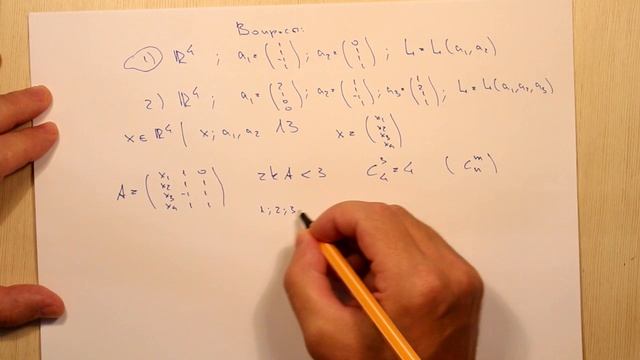 Вопросы:
1) ℝ⁴ ; a₁ = (1 1 -1 1) ; a₂ = (0 1 1 1) ; L = L(a₁, a₂)
2) ℝ⁴ ; a₁ = (2 1 0 0) ; a₂ = (1 1 -1 1) ; a₃ = (1 2 1 1) ; L = L(a₁, a₂, a₃)
x ∈ ℝ⁴ | x; a₁, a₂ ЛЗ x = (x₁ x₂ x₃ x₄)
A = (x₁ 1 0 x₂ 1 1 x₃ -1 1 x₄ 1 1) rk A < 3 C₄³ = 4 (Cₙᵐ)
1; 2; 3